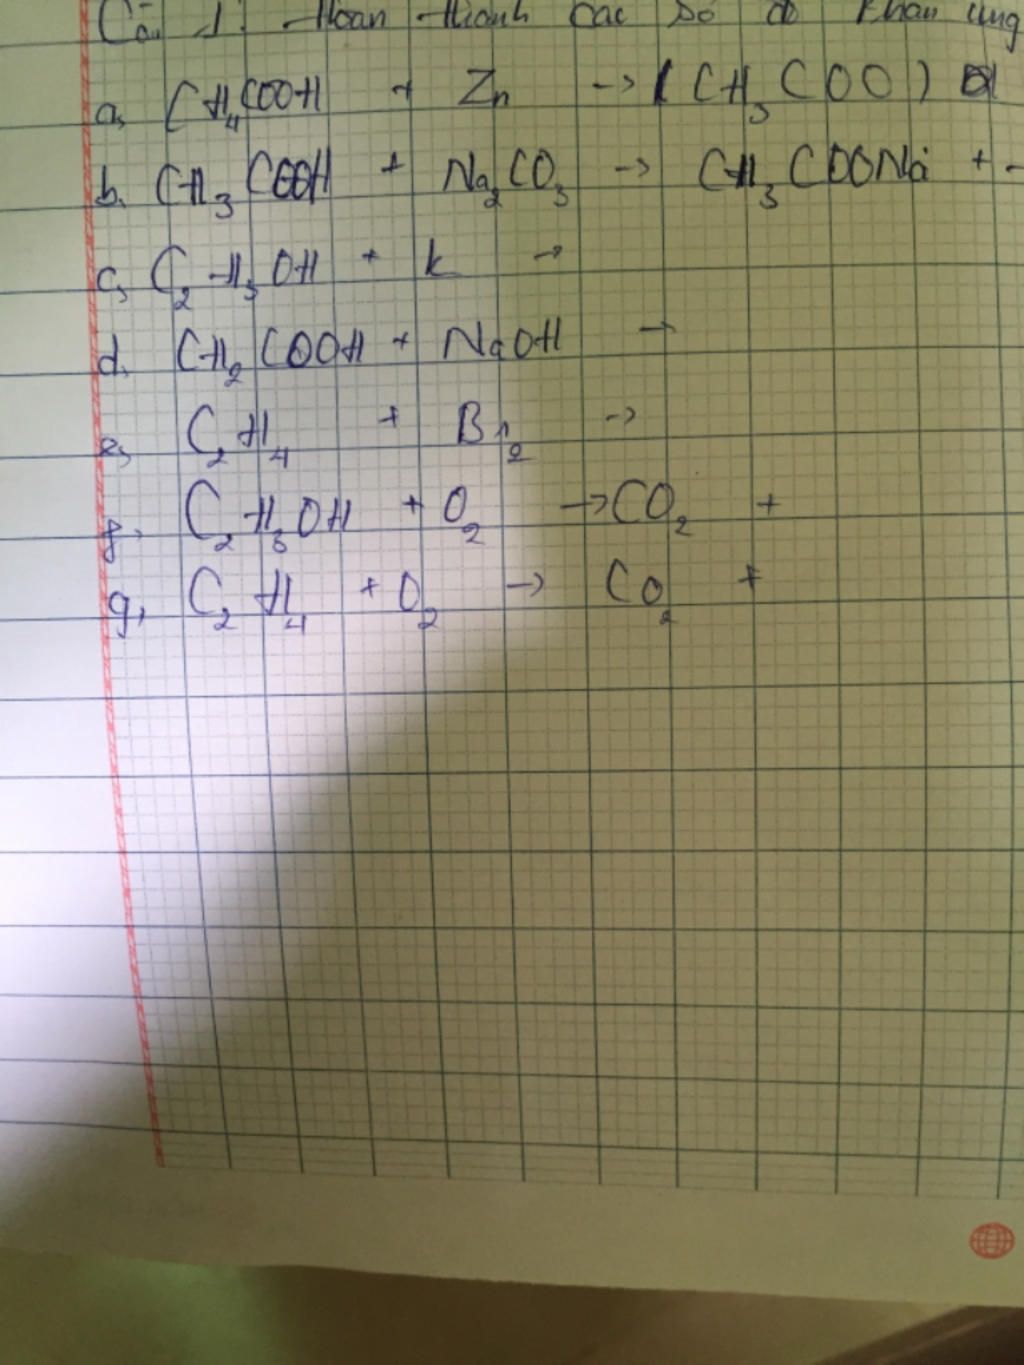 Câu 1: Hoàn thành các sơ đồ phản ứng
a, CH₄COOH + Zn → (CH₃COO)
b. CH₃COOH + Na₂CO₃ → CH₃COONa + -
c, C₂H₅OH + k →
d. CH₂COOH + NaOH →
e, C₂H₄ + Br₂ →
f, C₂H₅OH + O₂ → CO₂ +
g, C₂H₄ + O₂ → CO₂ +